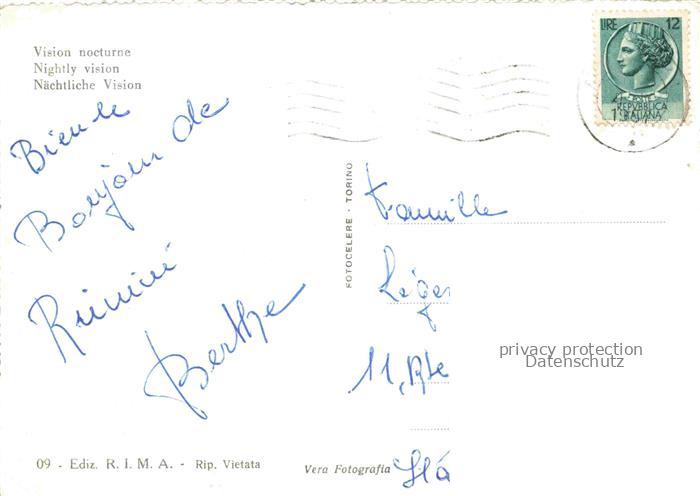 Vision nocturne
Nightly vision
Nächtliche Vision
LIRE 12
REPVBBLICA
ITALIANA
Bien le
Bonjour de
Rimini
Berthe
FOTOCELERE - TORINO
Famille
Léger
11, Rte
privacy protection
Datenschutz
09 - Ediz. R. I. M. A. - Rip. Vietata
Vera Fotografia